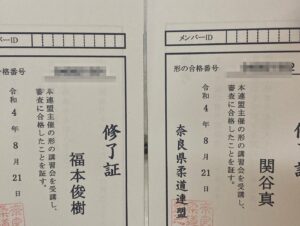 メンバーID
形の合格番号
修了証
関谷真
本連盟主催の形の講習会を受講し、
審査に合格したことを証す。
令和4年8月21日
奈良県柔道連盟
バーID
合格番号
修了証
福本俊樹
本連盟主催の形の講習会を受講し、
審査に合格したことを証す。
令和4年8月21日